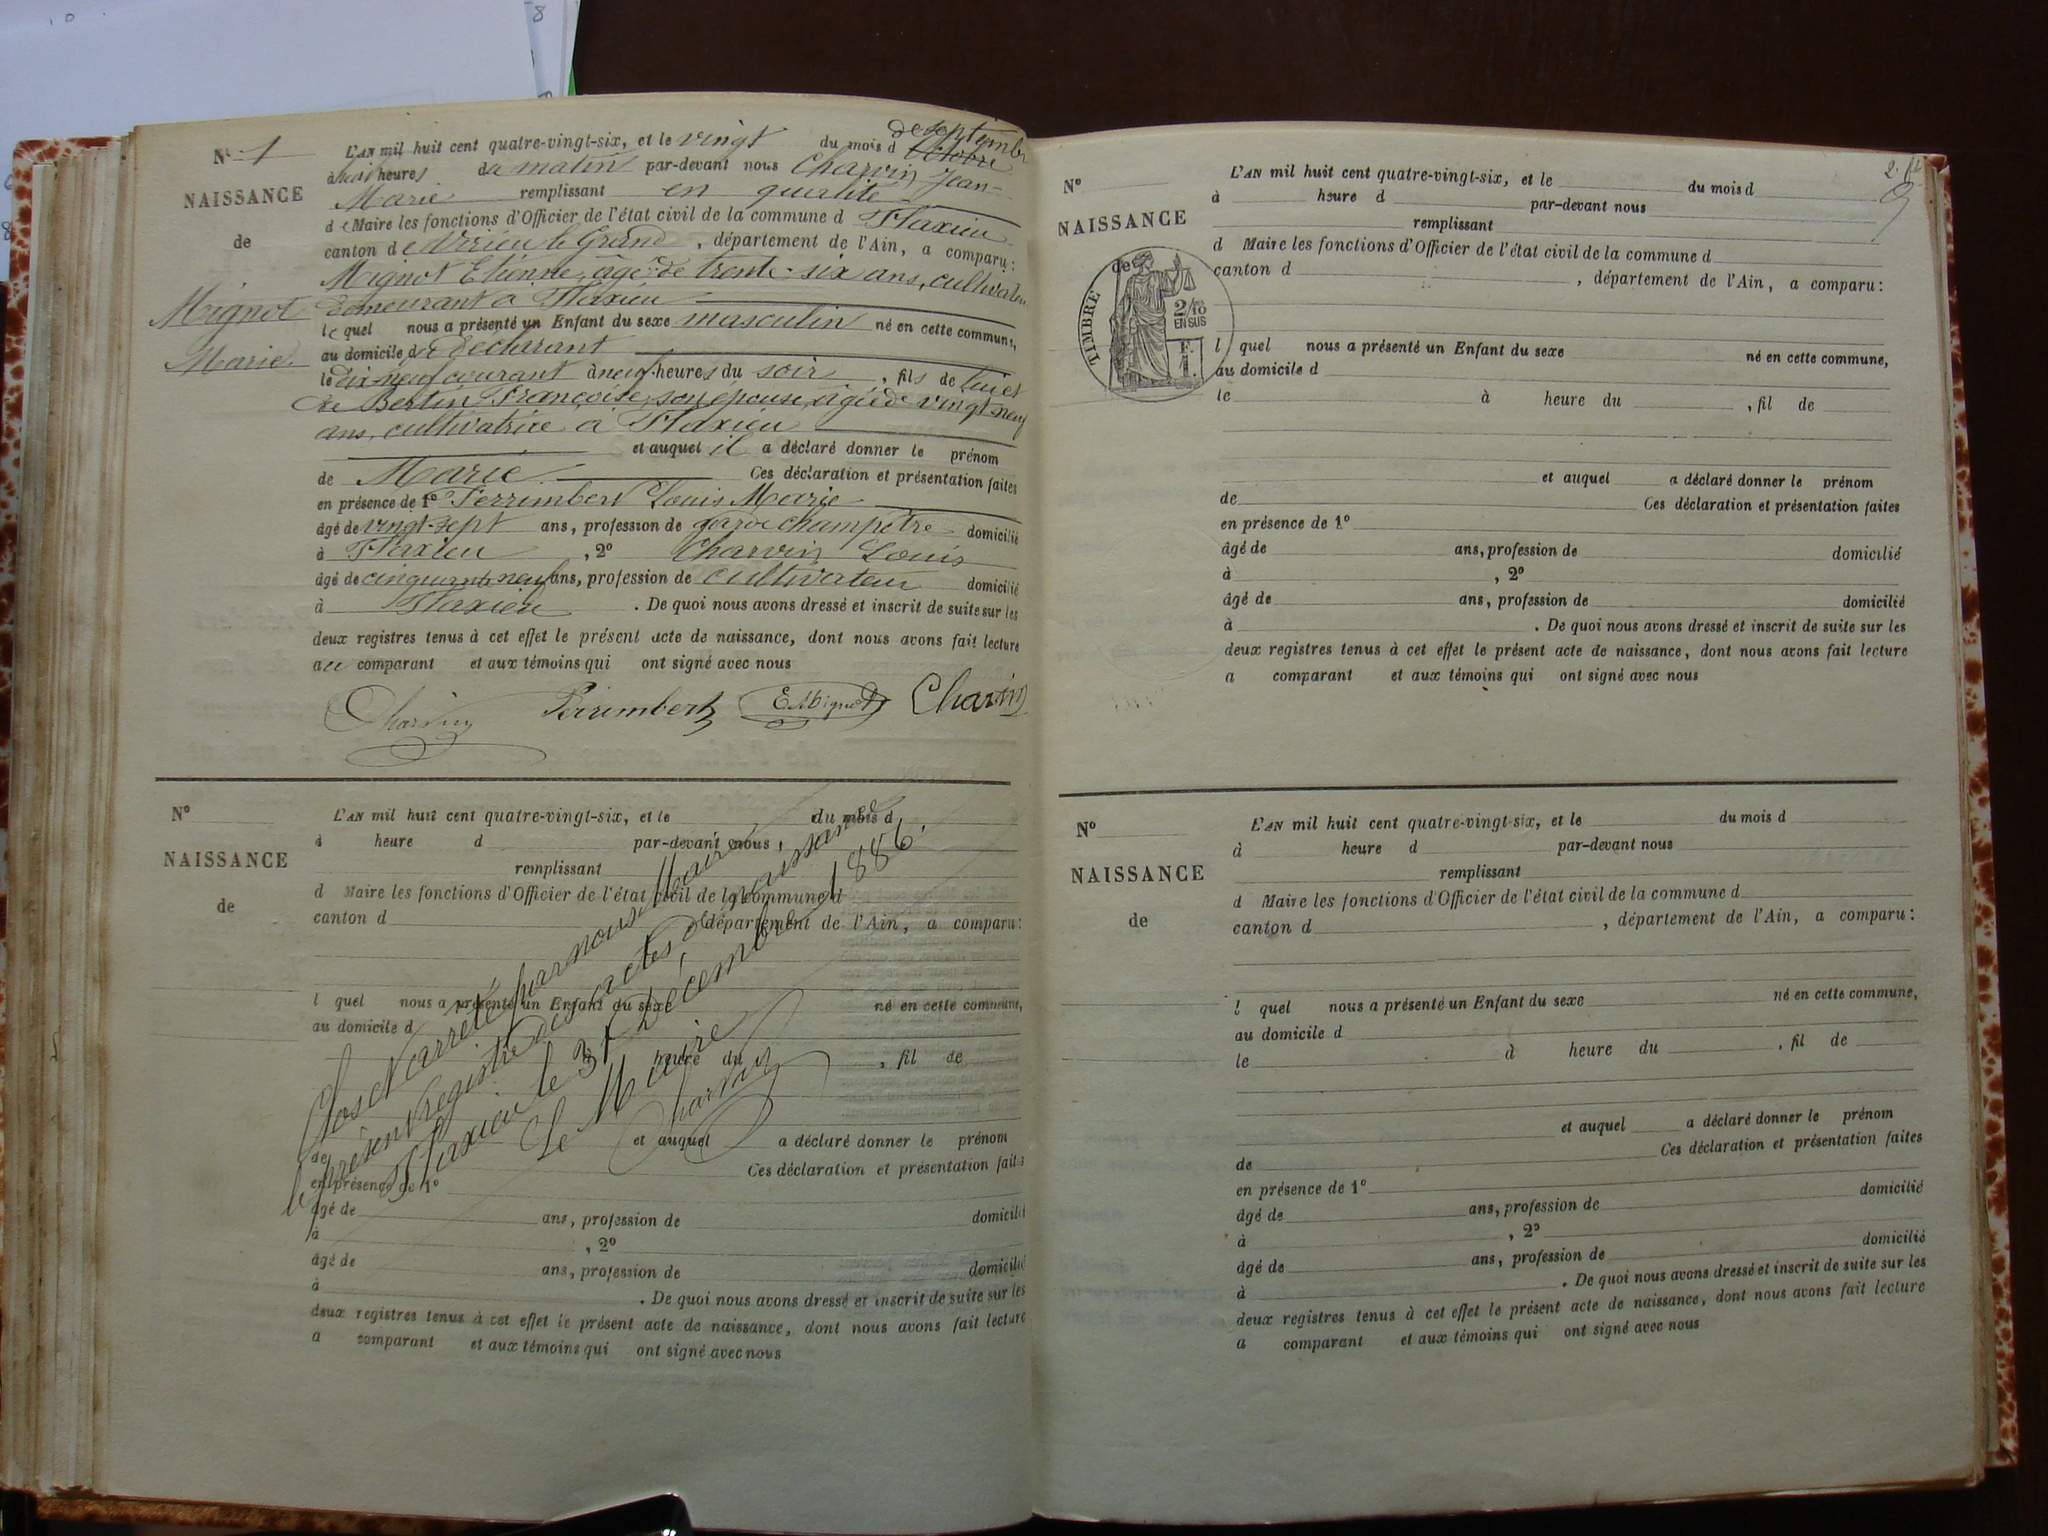 N° 1
NAISSANCE
de
Mignot
Marie.
L'AN mil huit cent quatre-vingt-six, et le vingt du mois de septembre octobre
à huit heures du matin par-devant nous Charvin Jean-
Marie remplissant en qualité
de Maire les fonctions d'Officier de l'état civil de la commune d Flaxieu
canton de Virieu le Grand, département de l'Ain, a comparu :
Mignot Etienne, âgé de trente-six ans, cultivateur
demeurant à Flaxieu
lequel nous a présenté un Enfant du sexe masculin né en cette commune,
au domicile du déclarant
le dix-neuf courant à neuf heures du soir, fils de lui et
de Bertin Françoise, son épouse, âgée de vingt-neuf
ans, cultivatrice à Flaxieu
et auquel il a déclaré donner le prénom
de Marie. Ces déclaration et présentation faites
en présence de 1° Perrimbert Louis Marie
âgé de vingt-sept ans, profession de garde champêtre domicilié
à Flaxieu, 2° Charvin Louis
âgé de cinquante neuf ans, profession de cultivateur domicilié
à Flaxieu. De quoi nous avons dressé et inscrit de suite sur les
deux registres tenus à cet effet le présent acte de naissance, dont nous avons fait lecture
au comparant et aux témoins qui ont signé avec nous
Charvin Perrimbert E Mignot Charvin
N°
NAISSANCE
de
L'AN mil huit cent quatre-vingt-six, et le du mois d
à heure d par-devant nous
remplissant
d Maire les fonctions d'Officier de l'état civil de la commune d
canton d département de l'Ain, a comparu :
l quel nous a présenté un Enfant du sexe né en cette commune,
au domicile d
heure du , fil de
et auquel a déclaré donner le prénom
de Ces déclaration et présentation faites
en présence de 1°
âgé de ans, profession de domicilié
à , 2°
âgé de ans, profession de domicilié
à . De quoi nous avons dressé et inscrit de suite sur les
deux registres tenus à cet effet le présent acte de naissance, dont nous avons fait lecture
a comparant et aux témoins qui ont signé avec nous
Clos et arrêté par nous, Maire,
le présent registre des actes de naissance
Flaxieu le 31 Décembre 1886.
Le Maire
Charvin
2.
N°
NAISSANCE
de
TIMBRE
2/10
EN SUS
F.
1.
L'AN mil huit cent quatre-vingt-six, et le du mois d
à heure d par-devant nous
remplissant
d Maire les fonctions d'Officier de l'état civil de la commune d
canton d , département de l'Ain, a comparu :
l quel nous a présenté un Enfant du sexe né en cette commune,
au domicile d
le à heure du , fil de
et auquel a déclaré donner le prénom
de Ces déclaration et présentation faites
en présence de 1°
âgé de ans, profession de domicilié
à , 2°
âgé de ans, profession de domicilié
à . De quoi nous avons dressé et inscrit de suite sur les
deux registres tenus à cet effet le présent acte de naissance, dont nous avons fait lecture
a comparant et aux témoins qui ont signé avec nous
N°
NAISSANCE
de
L'AN mil huit cent quatre-vingt-six, et le du mois d
à heure d par-devant nous
remplissant
d Maire les fonctions d'Officier de l'état civil de la commune d
canton d , département de l'Ain, a comparu :
l quel nous a présenté un Enfant du sexe né en cette commune,
au domicile d
le à heure du , fil de
et auquel a déclaré donner le prénom
de Ces déclaration et présentation faites
en présence de 1°
âgé de ans, profession de domicilié
à , 2°
âgé de ans, profession de domicilié
à . De quoi nous avons dressé et inscrit de suite sur les
deux registres tenus à cet effet le présent acte de naissance, dont nous avons fait lecture
a comparant et aux témoins qui ont signé avec nous